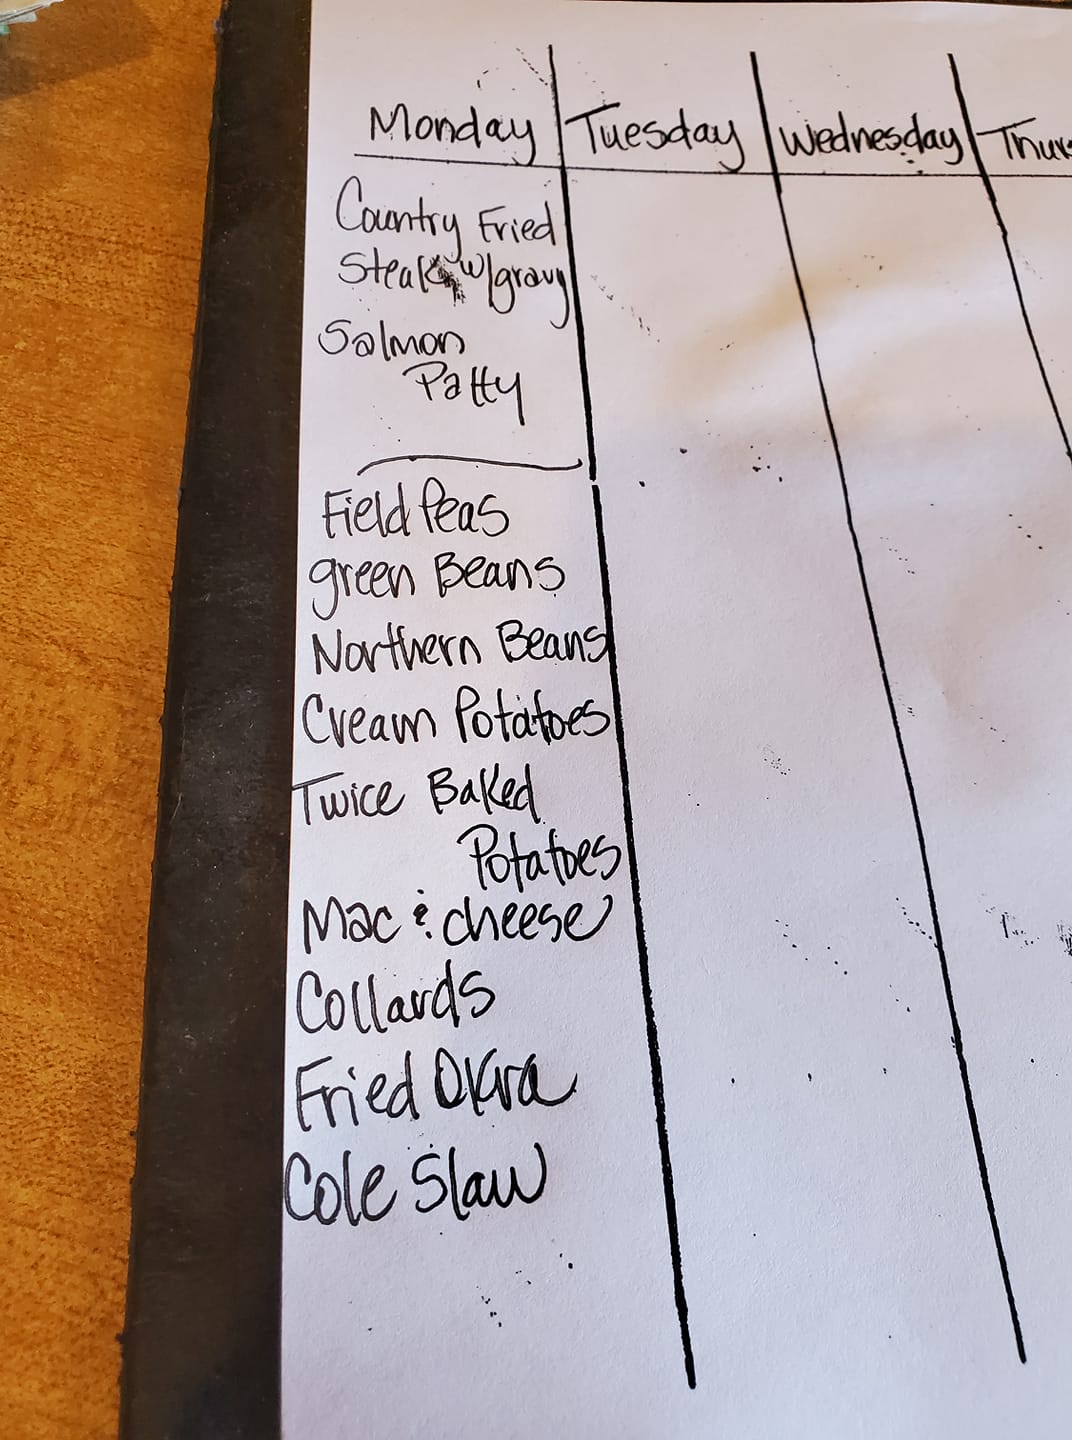 Monday Tuesday Wednesday Thurs
Country Fried
Steak w/gravy
Salmon
Patty
Field Peas
green Beans
Northern Beans
Cream Potatoes
Twice Baked
Potatoes
Mac & cheese
Collards
Fried Okra
Cole Slaw